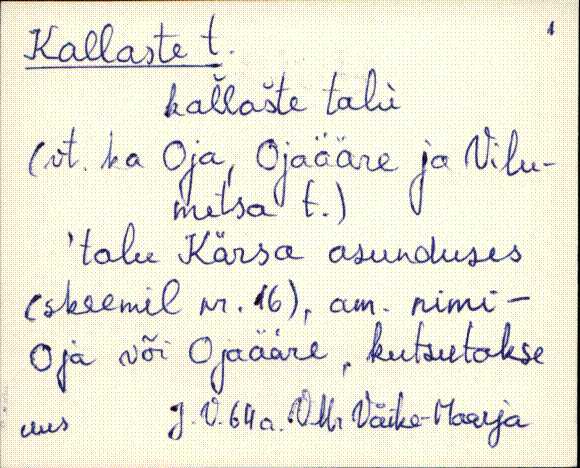 1
Kallaste t.
kallašte talù
(vt. ka Oja, Ojaääre ja Vilu-
metsa t.)
'talu Kärsa asunduses
(skeemil nr. 16), am. nimi-
Oja või Ojaääre, kutsutakse
uus J.V. 64 a. VMr Väike-Maarja